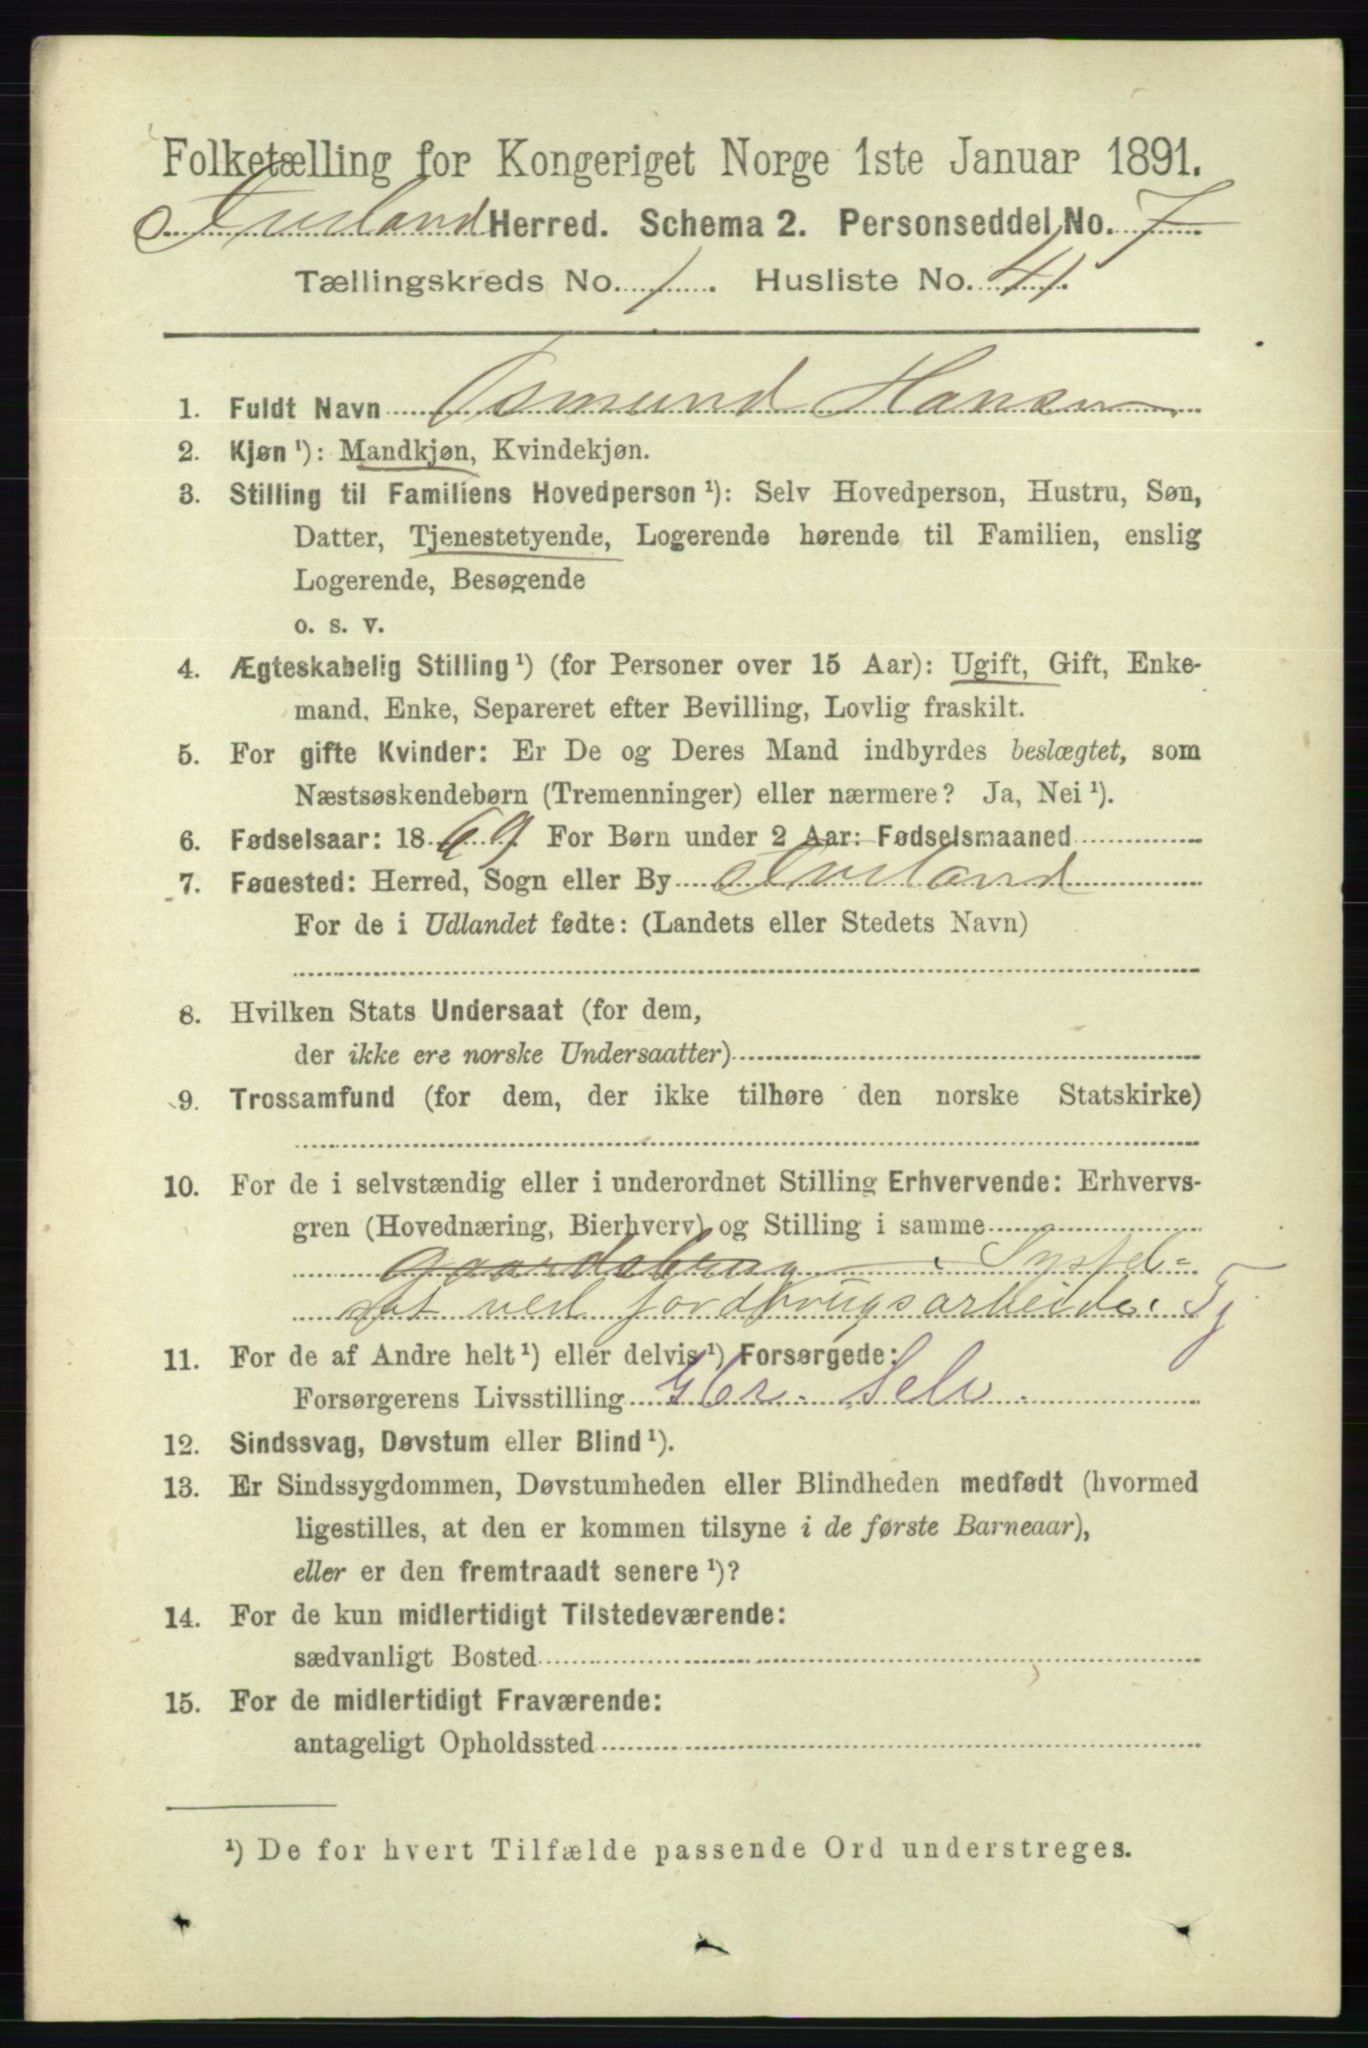 Folketælling for Kongeriget Norge 1ste Januar 1891.
Herred. Schema 2. Personseddel No. 7
Tællingskreds No. 1. Husliste No. 41.
1. Fuldt Navn Osmund Hansen
2. Kjøn ¹): Mandkjøn, Kvindekjøn.
3. Stilling til Familiens Hovedperson ¹): Selv Hovedperson, Hustru, Søn,
Datter, Tjenestetyende, Logerende hørende til Familien, enslig
Logerende, Besøgende
o. s. v.
4. Ægteskabelig Stilling ¹) (for Personer over 15 Aar): Ugift, Gift, Enke-
mand, Enke, Separeret efter Bevilling, Lovlig fraskilt.
5. For gifte Kvinder: Er De og Deres Mand indbyrdes beslægtet, som
Næstsøskendebørn (Tremenninger) eller nærmere? Ja, Nei ¹).
6. Fødselsaar: 1869 For Børn under 2 Aar: Fødselsmaaned
7. Fødested: Herred, Sogn eller By
For de i Udlandet fødte: (Landets eller Stedets Navn)
8. Hvilken Stats Undersaat (for dem,
der ikke ere norske Undersaatter)
9. Trossamfund (for dem, der ikke tilhøre den norske Statskirke)
10. For de i selvstændig eller i underordnet Stilling Erhvervende: Erhvervs-
gren (Hovednæring, Bierhverv) og Stilling i samme
Gaardsbrug Syssel-
sat ved jordbrugsarbeide. Tj
11. For de af Andre helt ¹) eller delvis ¹) Forsørgede:
Forsørgerens Livsstilling Selv.
12. Sindssvag, Døvstum eller Blind ¹).
13. Er Sindssygdommen, Døvstumheden eller Blindheden medfødt (hvormed
ligestilles, at den er kommen tilsyne i de første Barneaar),
eller er den fremtraadt senere ¹)?
14. For de kun midlertidigt Tilstedeværende:
sædvanligt Bosted
15. For de midlertidigt Fraværende:
antageligt Opholdssted
¹) De for hvert Tilfælde passende Ord understreges.